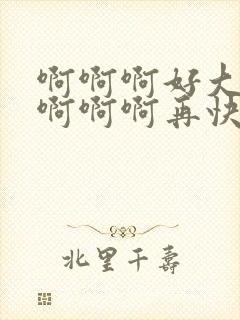 啊啊啊好大
啊啊啊再快
北里千寿